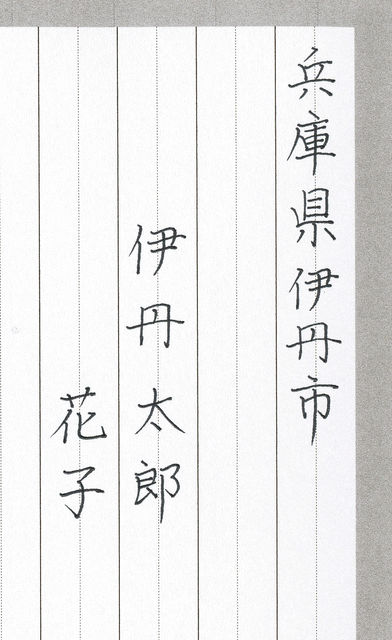 兵庫県伊丹市
伊丹太郎
花子